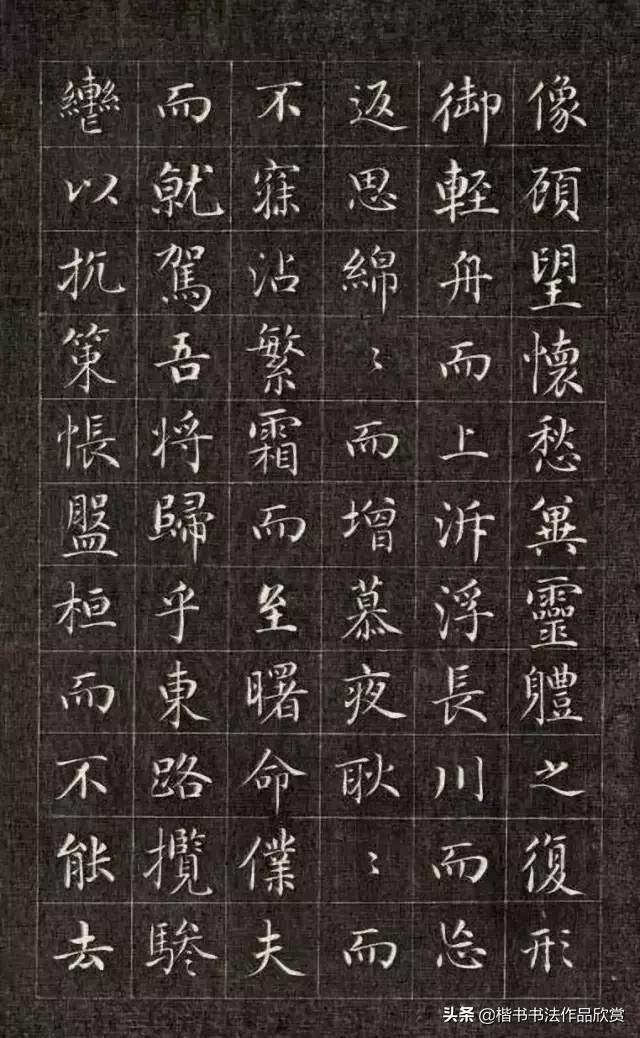 像頋望懷愁兾靈軆之復形
御輊舟而上泝浮長川而忘
返思綿〻而增慕夜耿〻而
不寐沾繁霜而至曙命僕夫
而就駕吾将歸乎東路攬騑
轡以抗策悵盤桓而不能去
头条 @楷书书法作品欣赏